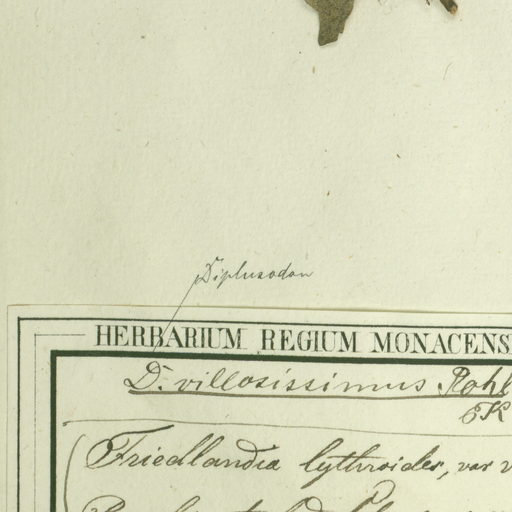 Diplusodon
HERBARIUM REGIUM MONACENS
D. villosissimus Pohl
Friedlandia lythroides, var